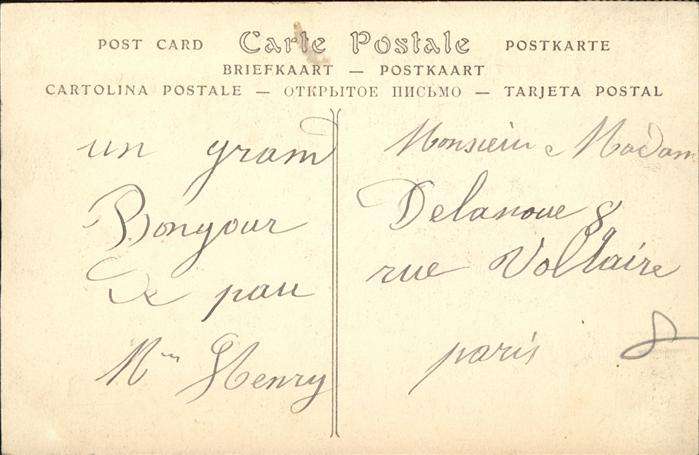 POST CARD Carte Postale POSTKARTE
BRIEFKAART — POSTKAART
CARTOLINA POSTALE — ОТКРЫТОЕ ПИСЬМО — TARJETA POSTAL
un grand
Bonjour
De pau
Mme Henry
Monsieur e Madam
Delanoue 8
rue Voltaire
paris 8